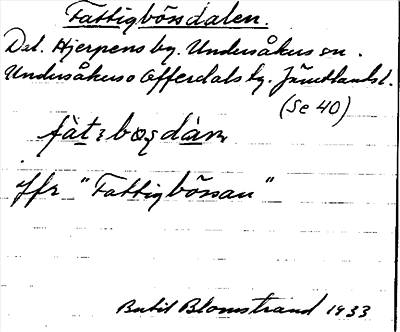 Fattigbössdalen.
Del. Hjerpens by. Undersåkers sn.
Undersåkers o Offerdals tg. Jämtlands l.
(Se 40)
jfr "Fattigbössan"
Bertil Blomstrand 1933